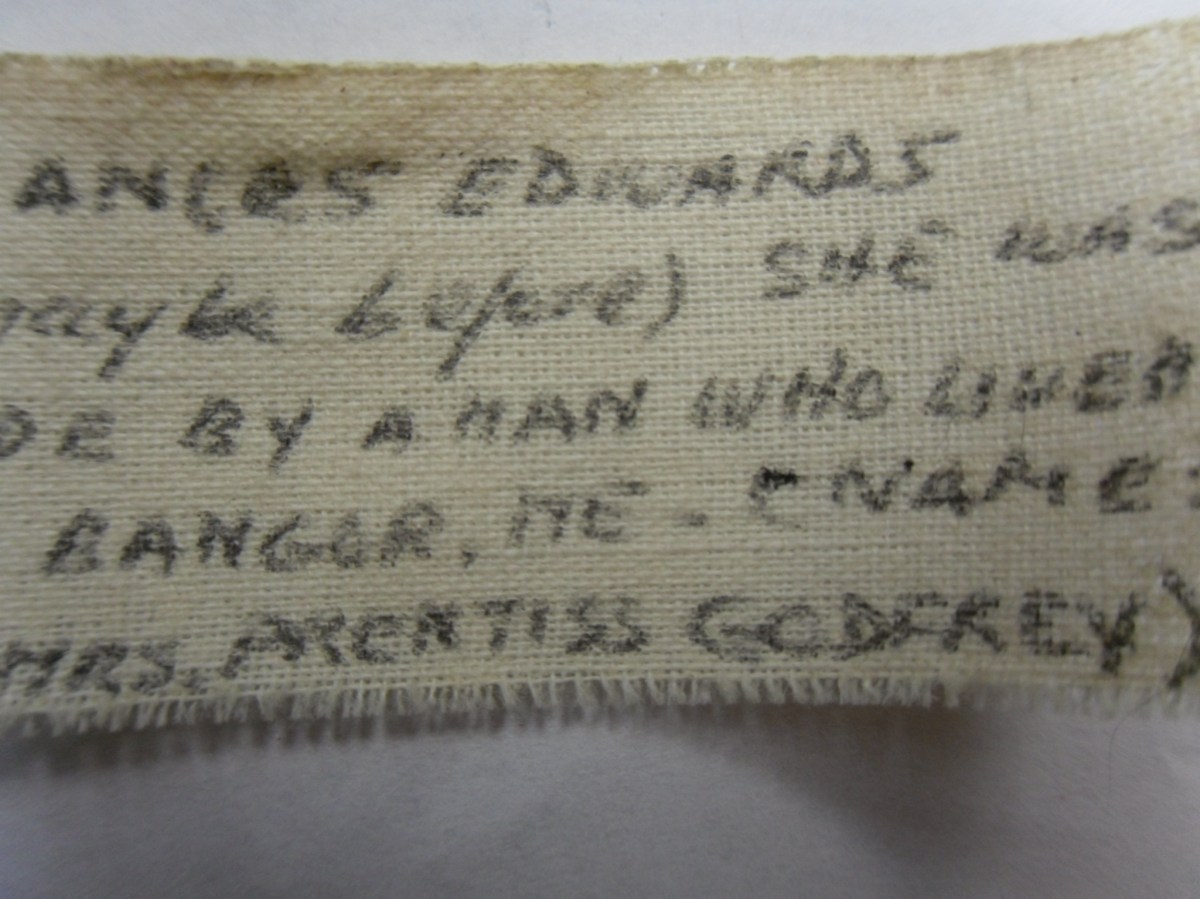 ANCES EDWARDS
maybe before) SHE WAS
DE BY A MAN WHO LIVED
BANGOR, ME - (NAME
MRS. PRENTISS GODFREY)